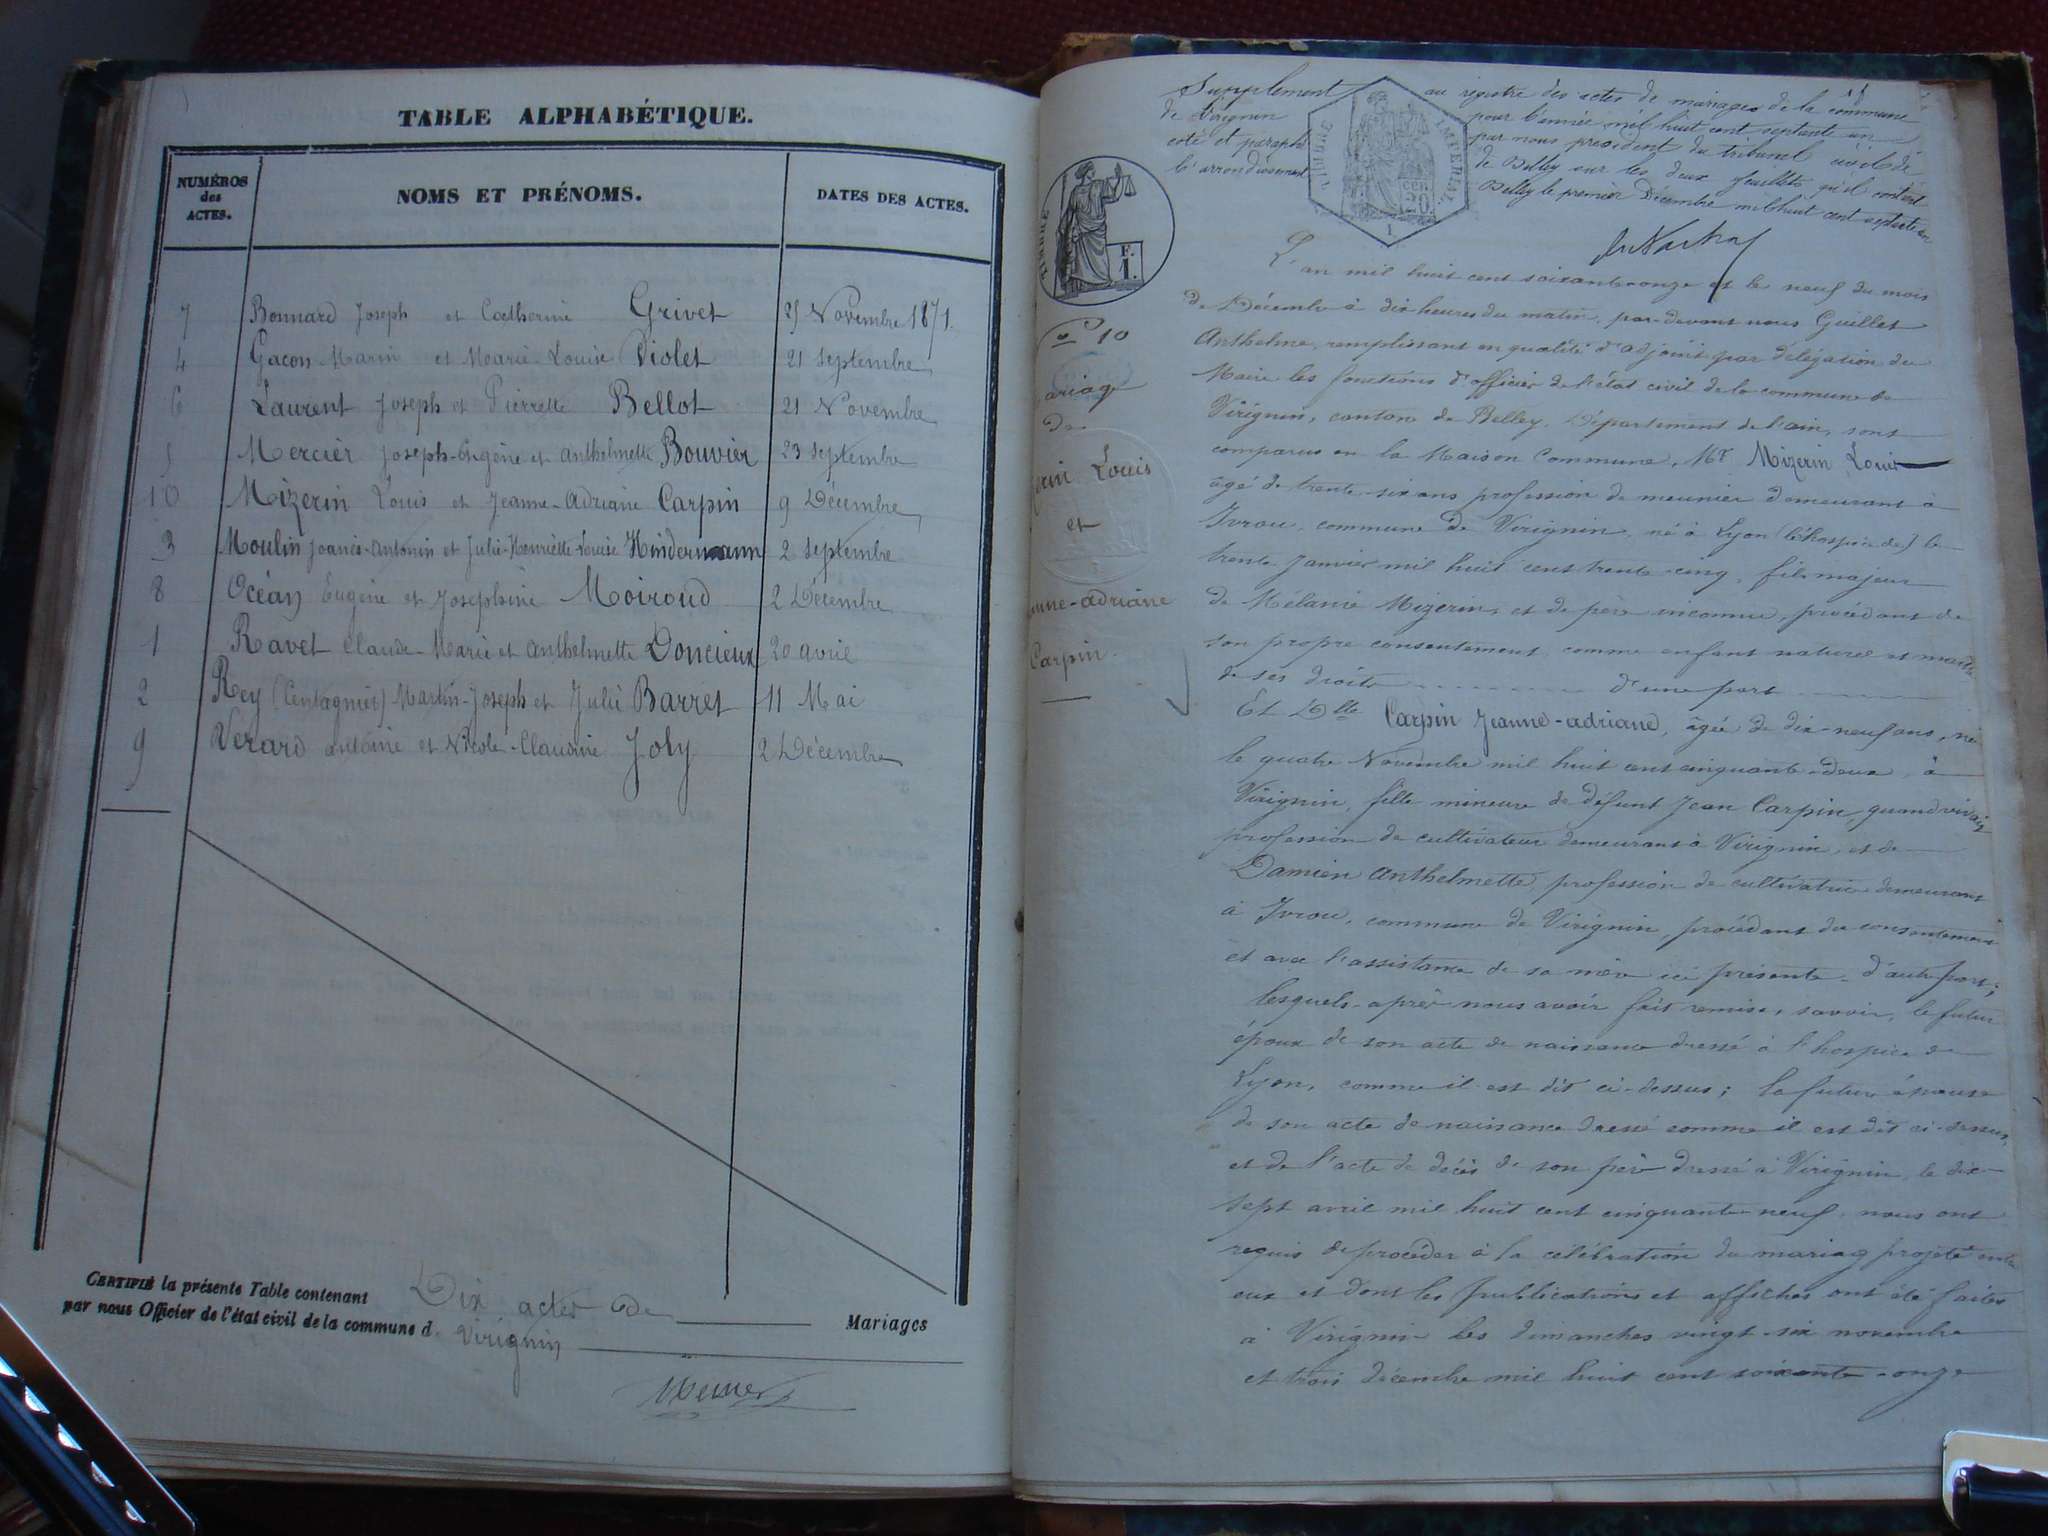 TABLE ALPHABÉTIQUE.
NUMÉROS des ACTES.
NOMS ET PRÉNOMS.
DATES DES ACTES.
7 Bonnard Joseph et Catherine Grivet 25 Novembre 1871.
4 Gacon Marin et Marie-Louise Violet 21 Septembre
6 Laurent Joseph et Pierrette Bellot 21 Novembre
5 Mercier Joseph-Eugène et Anthelmette Bouvier 23 Septembre
10 Mizerin Louis et Jeanne-Adriane Carpin 9 Décembre
3 Moulin Joanès-Antonin et Julie-Henriette-Louise Hindermann 2 Septembre
8 Océan Eugène et Joséphine Moiroud 2 Décembre
1 Ravet Claude-Marie et Anthelmette Doncieux 20 avril
2 Rey (Centagnier) Martin-Joseph et Julie Barret 11 Mai
9 Verard antoine et Nicole-Claudine Joly 2 Décembre
CERTIFIÉ la présente Table contenant Dix actes de Mariages
par nous Officier de l'état civil de la commune d. Virignin
Supplement au registre des actes de mariages de la commune
de Virignin pour l'année mil huit cent septante un
coté et paraphé par nous president du tribunal civil de
l'arrondissement de Belley sur les deux feuillets qu'il contient
Belley le premier Décembre mil huit cent septante un
TIMBRE IMPÉRIAL
CEN 20.
1
TIMBRE
F. 1.
L'an mil huit cent soixante-onze et le neuf du mois
de Décembre à dix heures du matin, par-devant nous Guillet
Anthelme, remplissant en qualité d'adjoint par délégation du
Maire les fonctions d'officier de l'état civil de la commune de
Virignin, canton de Belley, Département de l'ain, sont
comparus en la Maison Commune, Mr Mizerin Louis
âgé de trente-six ans profession de meunier demeurant à
Ivrou, commune de Virignin, né à Lyon (l'hospice de) le
trente Janvier mil huit cent trente-cinq, fils majeur
de Mélanie Mizerin, et de père inconnu, procédant de
son propre consentement comme enfant naturel et maître
de ses droits d'une part
Et Dlle Carpin Jeanne-adriane, âgée de dix-neuf ans, née
le quatre Novembre mil huit cent cinquante-deux, à
Virignin, fille mineure de défunt Jean Carpin, quand vivait
profession de cultivateur demeurant à Virignin, et de
Damien Anthelmette, profession de cultivatrice demeurant
à Ivrou, commune de Virignin, procédant du consentement
et avec l'assistance de sa mère ici présente, d'autre part;
lesquels après nous avoir fait remise, savoir, le futur
époux de son acte de naissance dressé à l'hospice de
Lyon, comme il est dit ci-dessus; la future épouse
de son acte de naissance dressé comme il est dit ci-dessus,
et de l'acte de décès de son père dressé à Virignin, le dix-
sept avril mil huit cent cinquante-neuf, nous ont
requis de procéder à la célébration du mariage projeté entre
eux et dont les publications et affiches ont été faites
à Virignin les dimanches vingt-six novembre
et trois décembre mil huit cent soixante-onze
No 10
ariage
de
erin Louis
et
anne-adriane
Carpin.